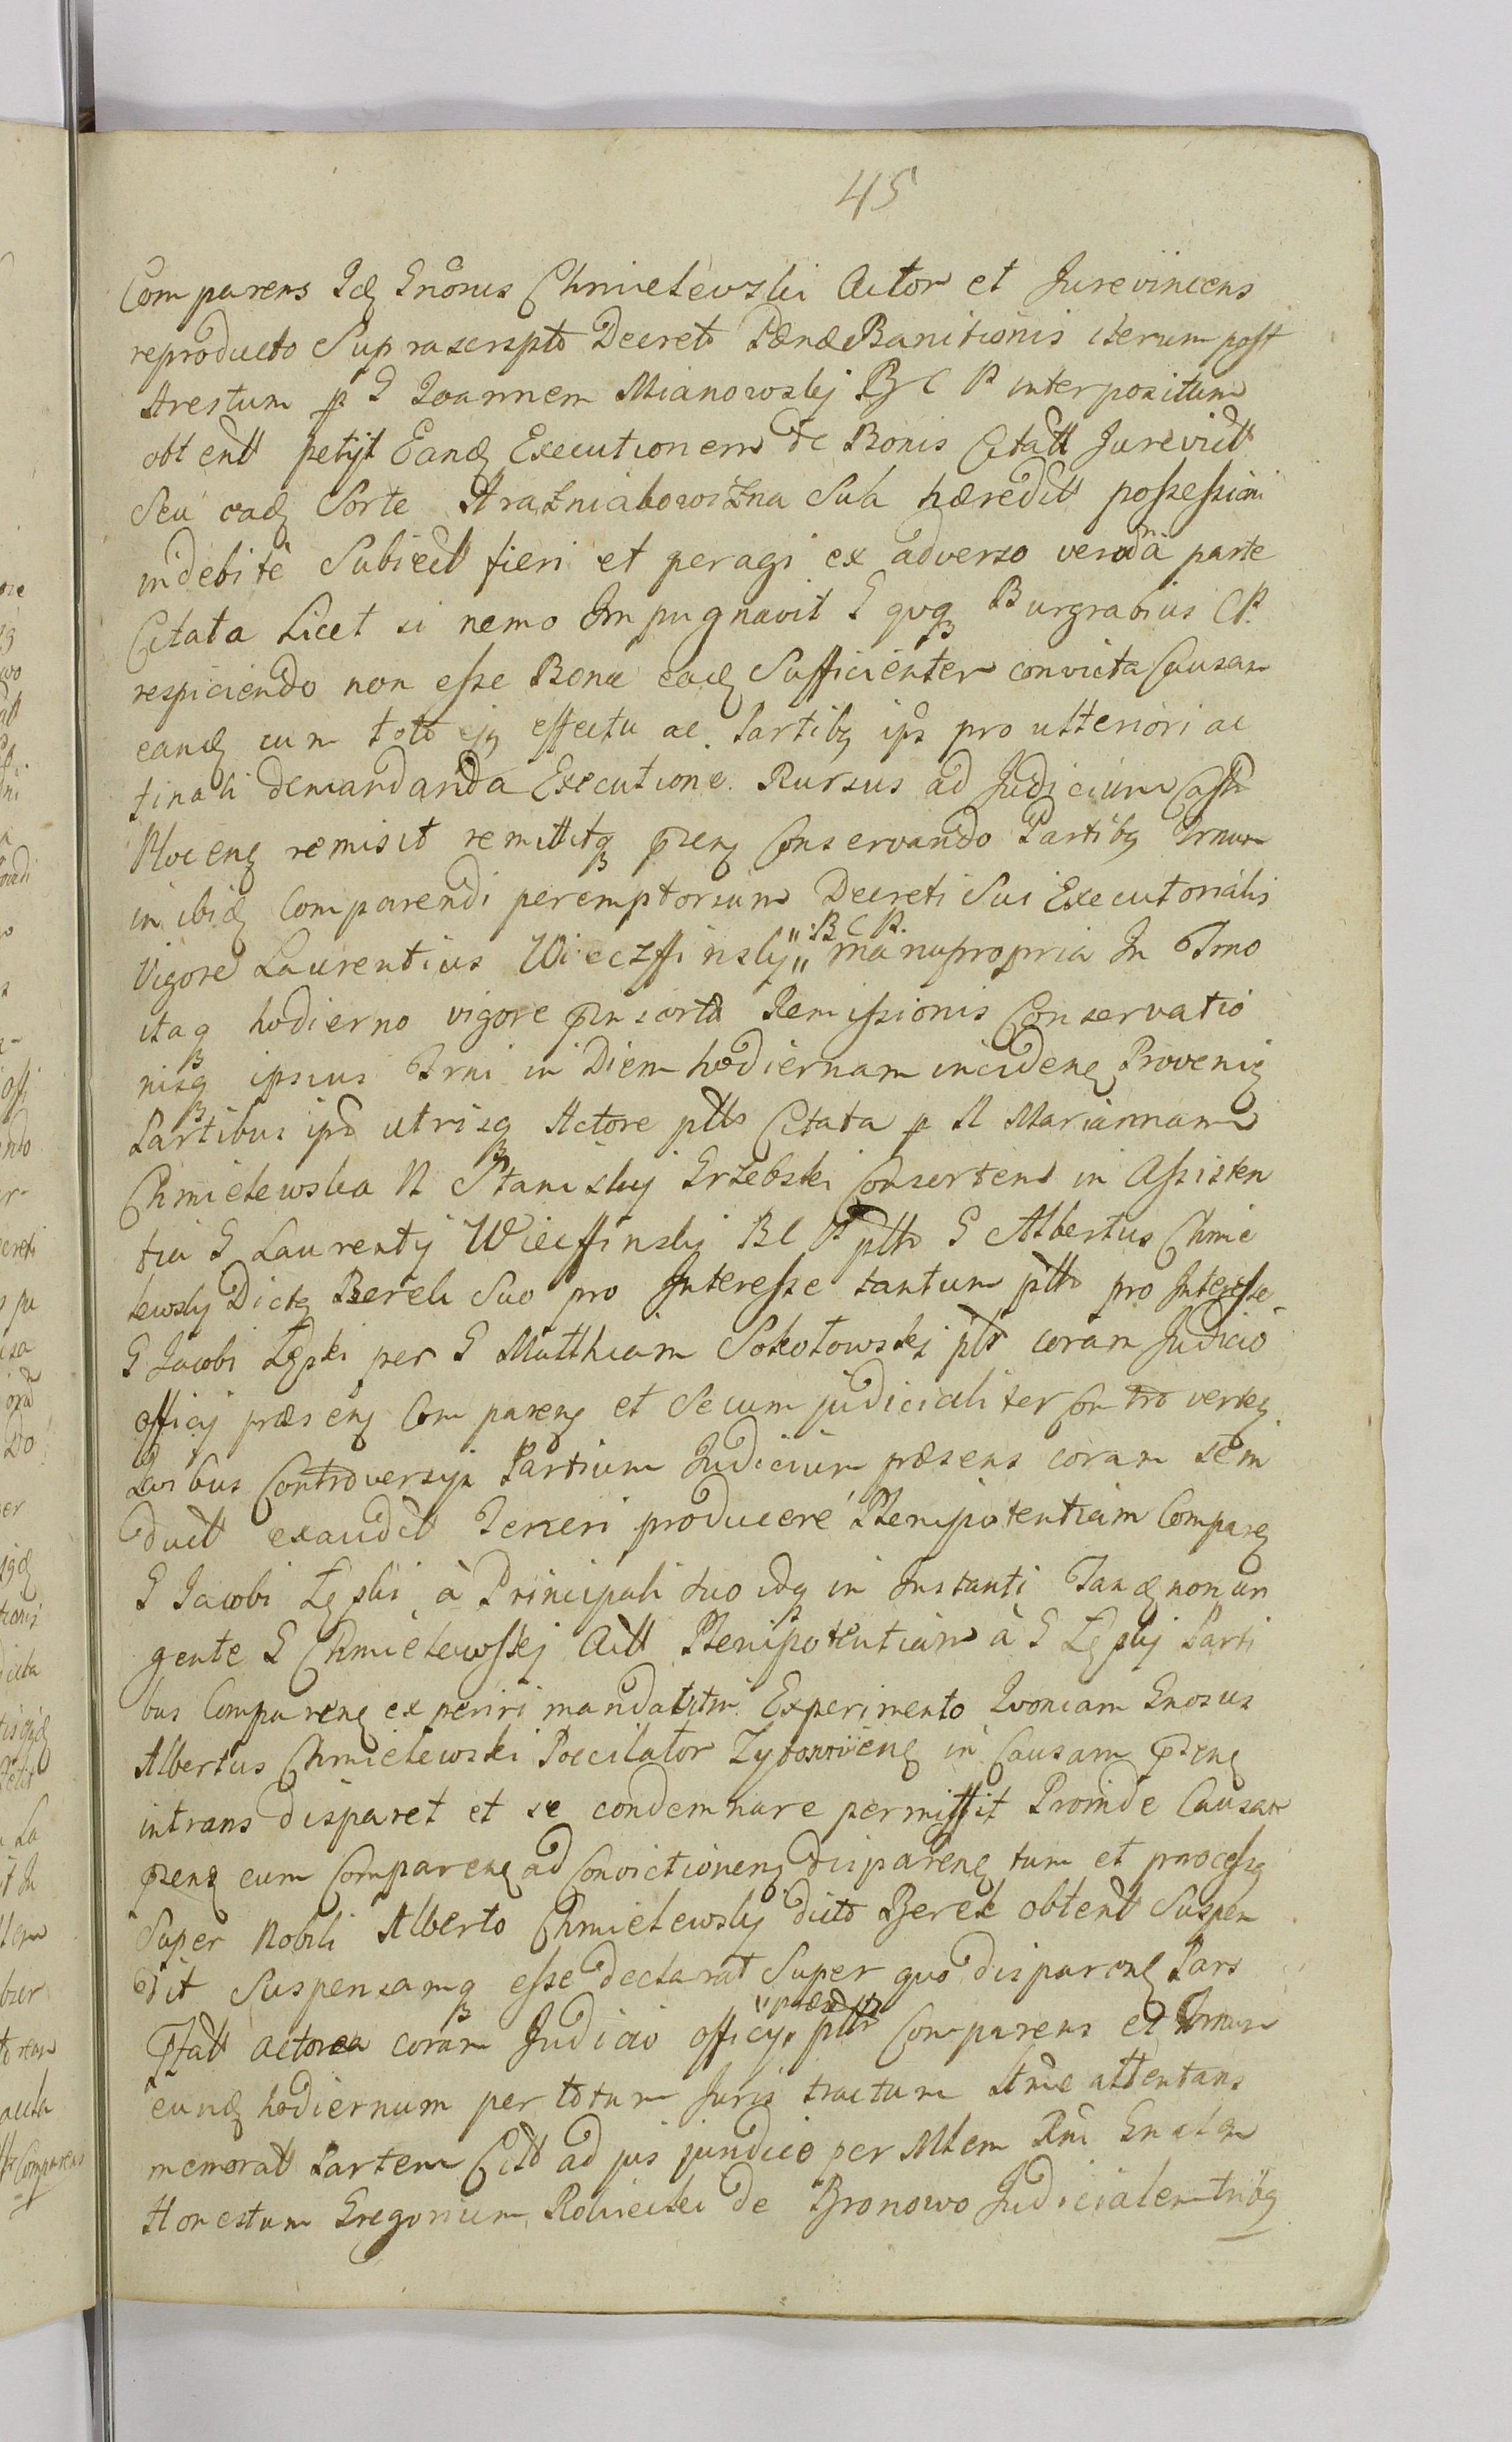 45
Comparens Idq Gnosus Chmielewski Actor et Jurevincens
reproducto Suprascripto Decreto Pænæ Banitionis iterum post
Arestum p G Joannem Mianowskj B C P interpositum
obtentt petijt Eandq Executionem de Bonis Citatt Jurevictt
Seu eadq Sorte Strazniakowizna Sub hæreditt possessioni
indebitè Subiectt fieri et peragi ex adverso vero parte
Citata Licet si nemo Impugnavit G qvoq Burgrabius C P.
respiciendo non esse Bona eadq Sufficienter convicta Causam
eandq cum toto ejq effectu ac Partibq ipś pro ulteriori ac
finali demandanda Executione. Rursus ad Judicium Castr
Plocenq remisit remittitq pnsenq Conservando Partibq Trnum
in ibidq Comparendi peremptorium Decreti Sui Executorialis
B C P.
Vigore Laurentius Wieczffinskj manupropria In Trno
itaq hodierno vigore Remissionis Conservatio
nisq ipsius Trni in Diem hodiernam incidenq Provenienq
Partibus ipś utrisq Actore pltr Citata p N Mariannam
Chmielewska N Stanislaj Grzebski Consortem in Assisten
tia G Laurentij Wieczffinskj B C P pltr G Albertus Chmie
lewskj Dictq Berek Suo pro Interesse tantum pltr pro Interesse
G Jacobi Łępski per G Matthiam Sokołowskj pltr coram Judicio
officij præsenq Comparenq et Secum judicialiter Controvertenq
Qvibus Controversijs Partium Judicium præsens coram Sem
ductt exauditt Teneri producere Plenipotentiam Comparenq
G Jacobi Łępski à Principali suo idq in Instanti Tandq non ur
gente G Chmielewskj Actt Plenipotentiam à G Łępskj Parti
bus Comparenq experiri mandatitur. Experimento Qvoniam Gnosus
Albertus Chmielewski Pocilator in Causam pnsenq
intrans disparet et se condemnare permittit Proinde Causam
pnsenq cum Comparenq ad Convictionem disparenq tum et processq
Super Nobili Alberto Chmielewskj dicto Berek obtentt Suspen
dit Suspensamq esse declarat Super quo disparenq Pars
actorea coram Judicio officij pltr Comparens et Trnum
eundq hodiernum per totum Juris tractum attentans
memoratt Partem Citt ad jus juridice per Mtem
Honestum Gregorium Robiecki de Bronowo Judicialem tribq